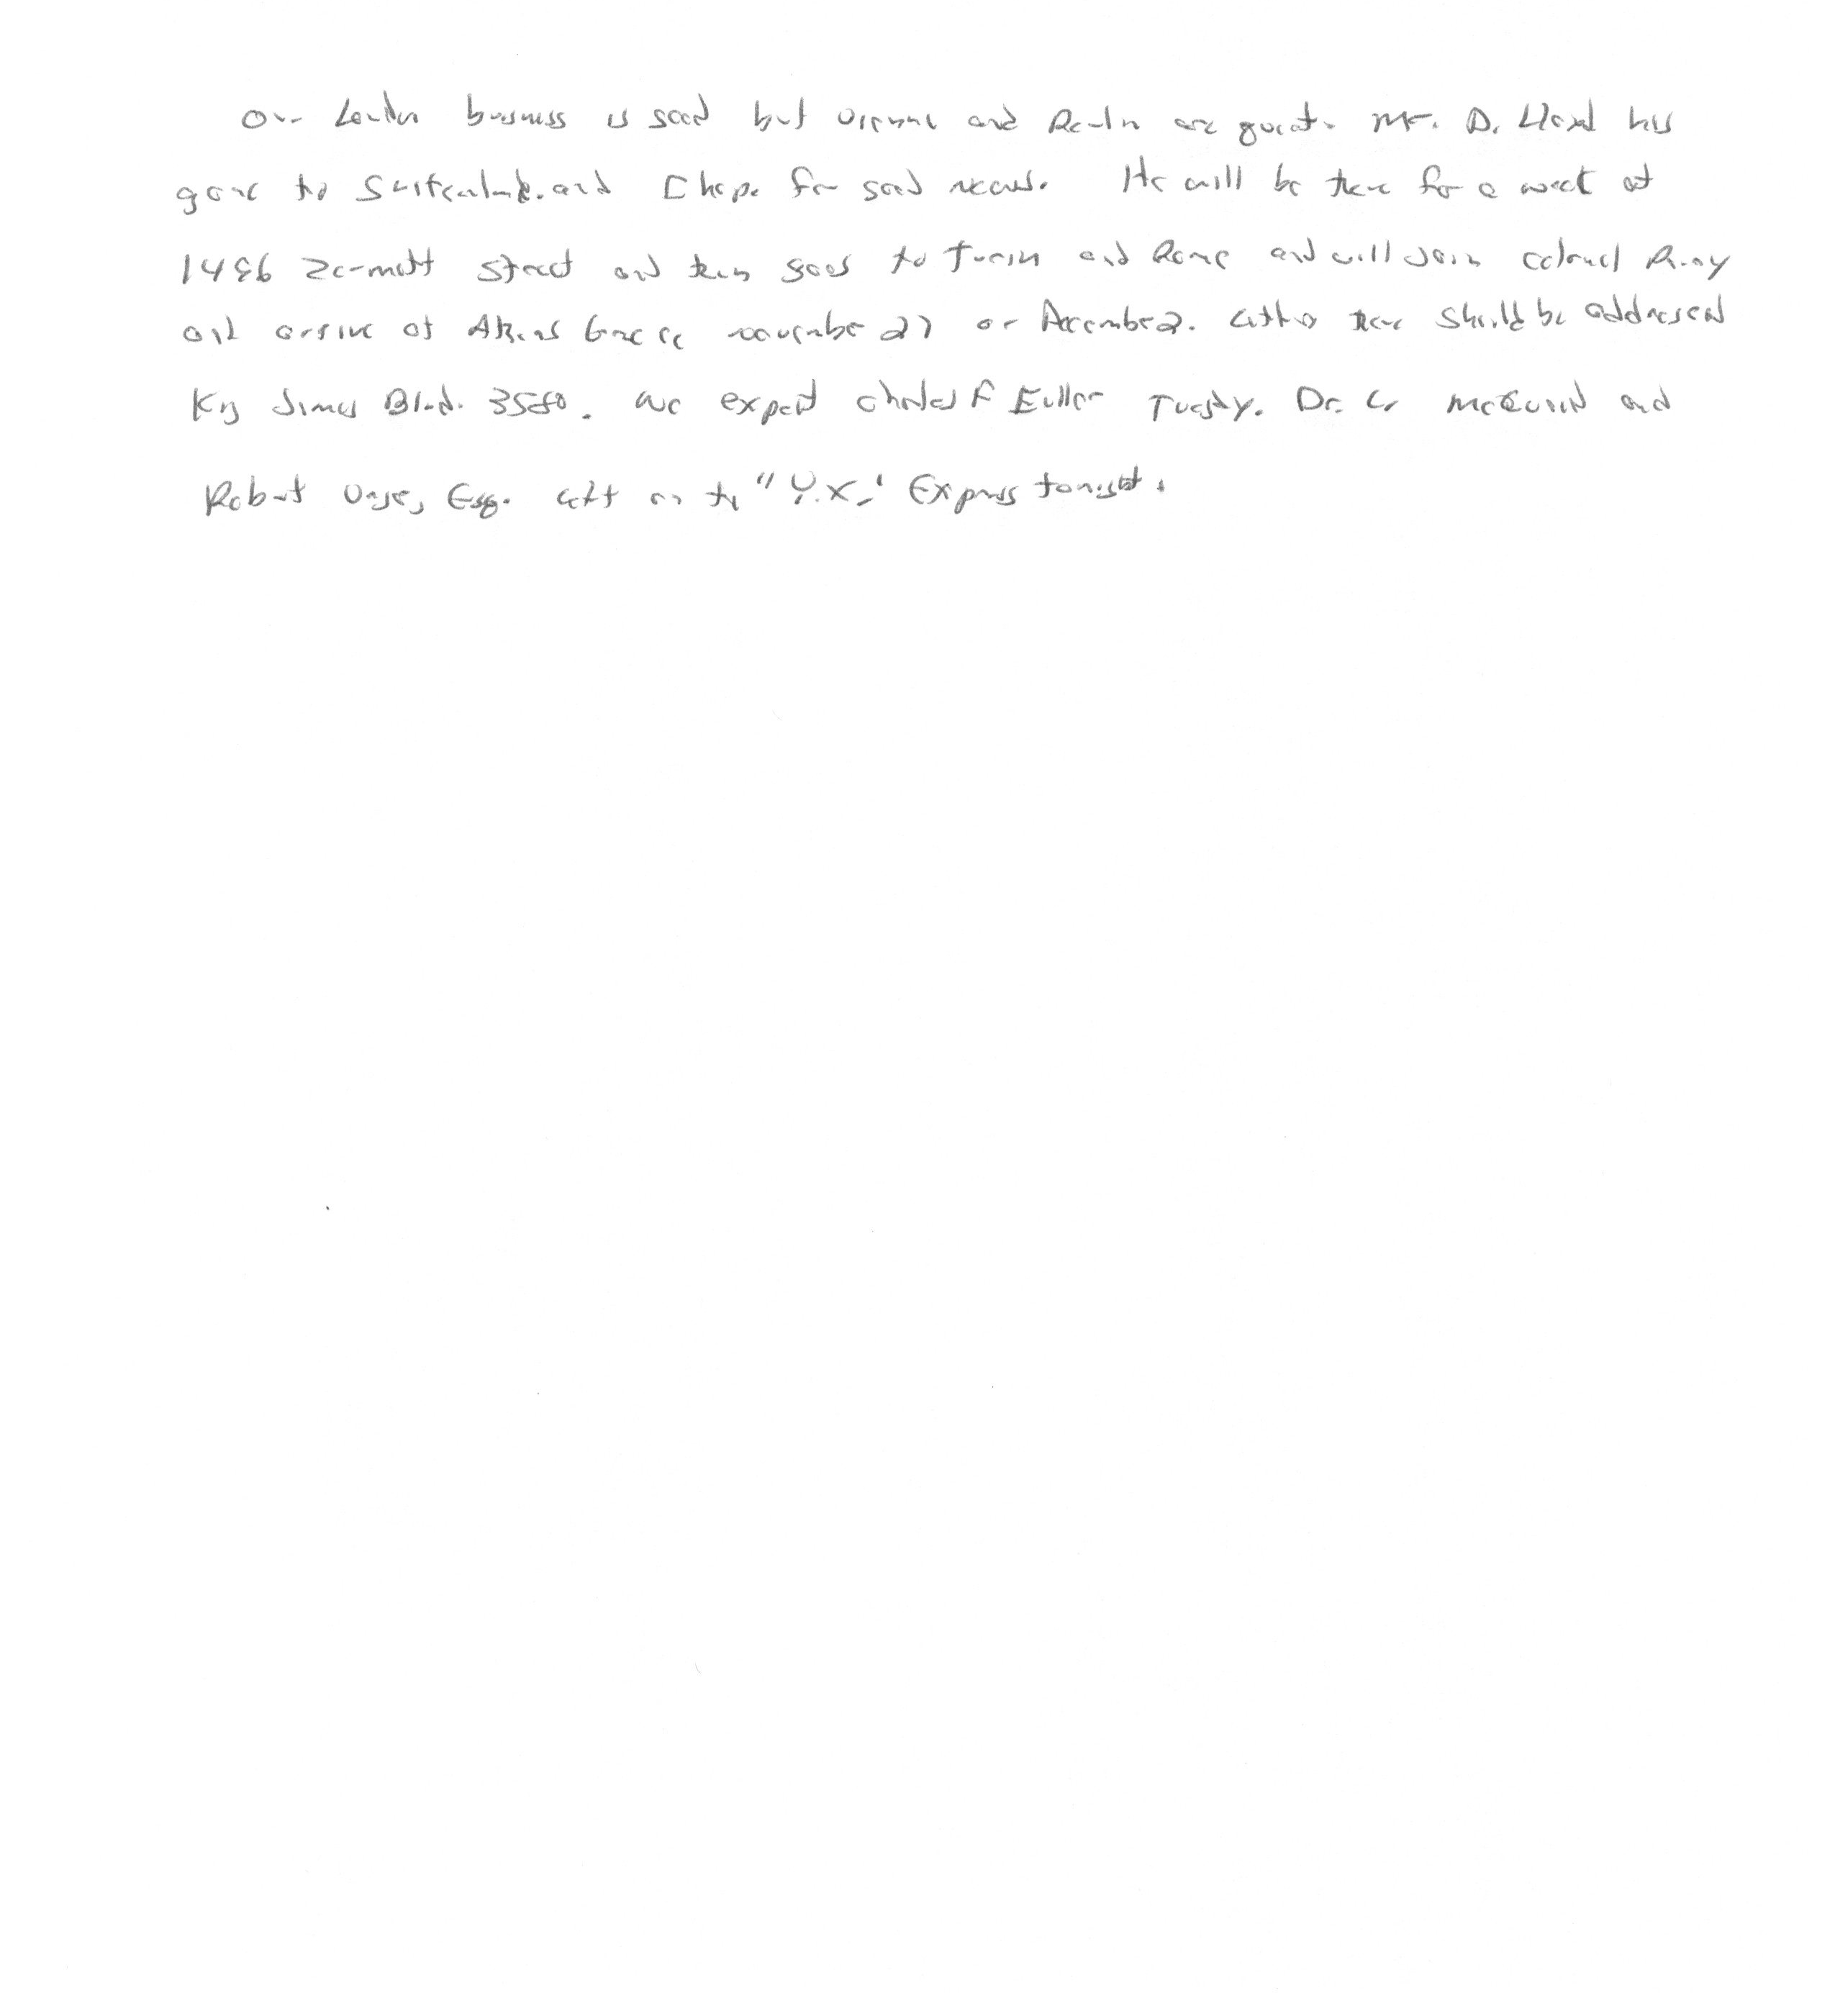 Our London business is good but Vienna and Berlin are quiet. Mr. D. Lloyd has
gone to Switzerland and I hope for good news. He will be there for a week at
1496 Zermatt Street and then goes to Turin and Rome and will join Colonel Parry
and arrive at Athens Greece November 27 or December 2. Letters there should be addressed
King James Blvd. 3580. We expect Charles E Fuller Tuesday. Dr. L McQuaid and
Robert Unger, Esq. left on the "Y.X." Express tonight.